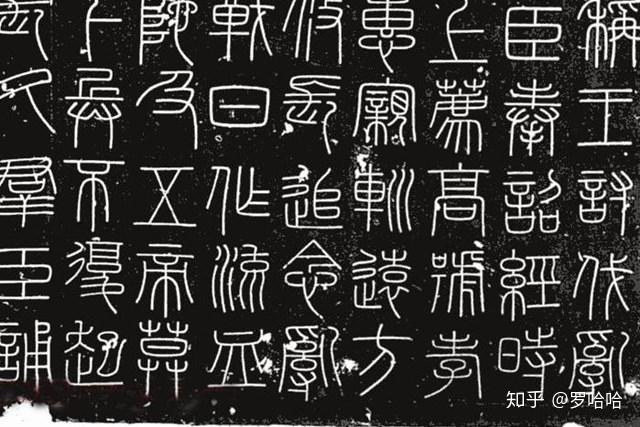 稱王討伐亂
臣奉詔經時
上薦高號孝
惠親巡遠方
攸長追念亂
戰日作流血
陀及五帝莫
下兵不復起
長久羣臣誦
知乎 @罗哈哈